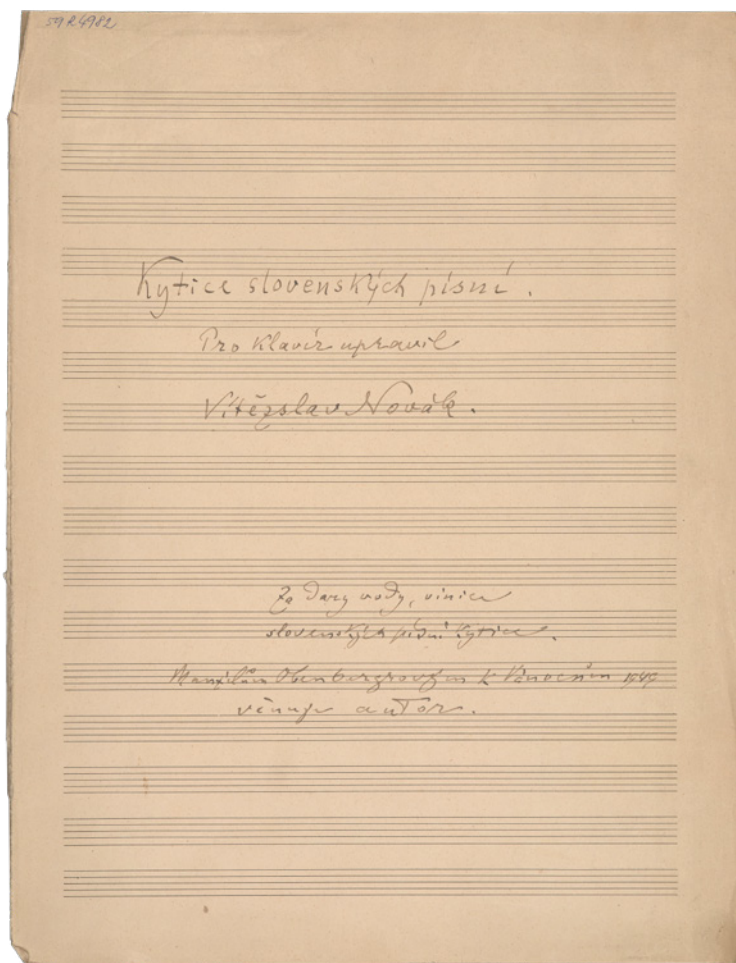 59 R 4982
Kytice slovenských písní.
Pro klavír upravil
Vítězslav Novák.
Za dary vody, vinice
slovenských písní kytice.
Manželům Obenbergrovým k Vánocům 1949
věnuje autor.